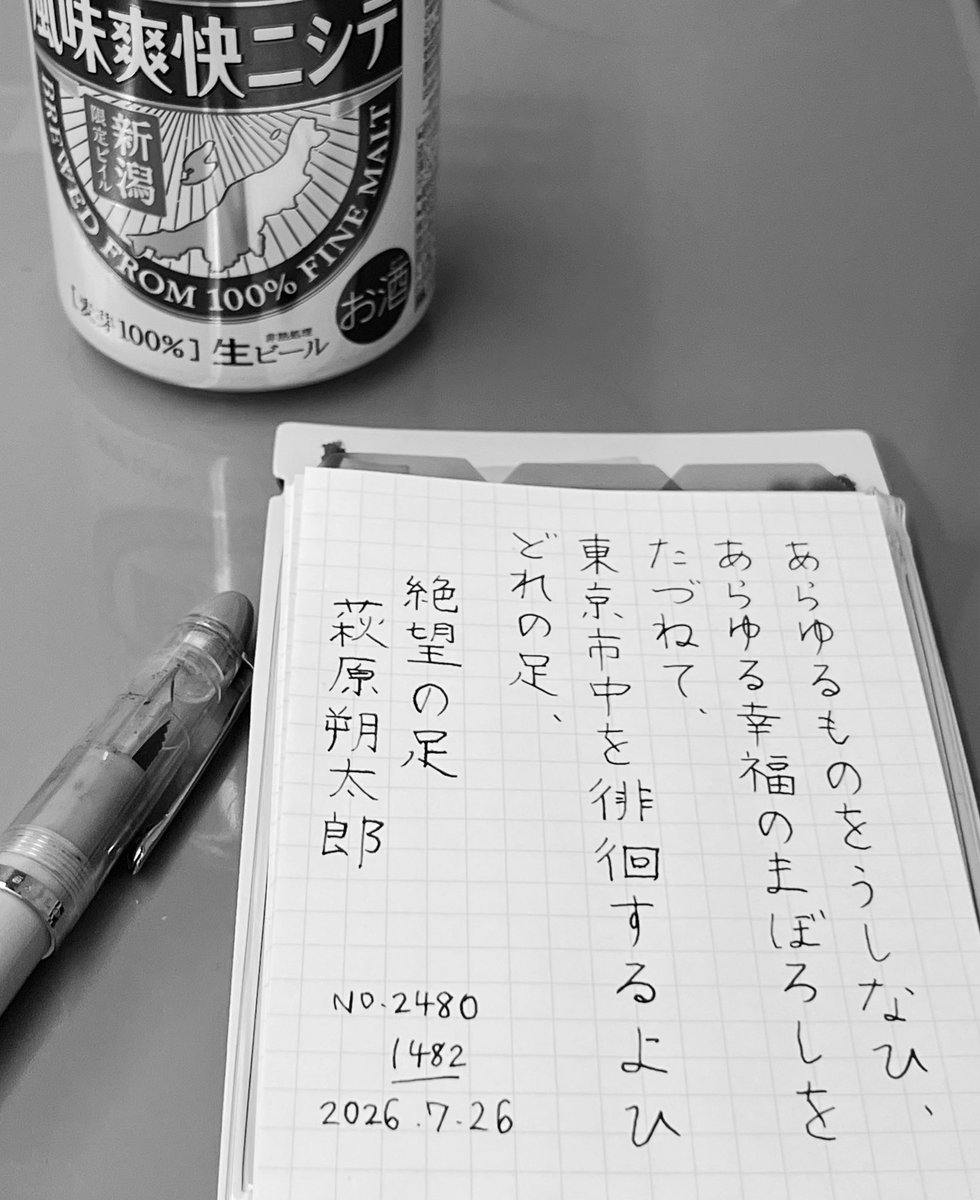 風味爽快ニシテ
新潟
限定ビイル
BREWED FROM 100% FINE MALT
お酒
[麦芽100%] 生ビール
非熱処理
あらゆるものをうしなひ、
あらゆる幸福のまぼろしを
たづねて、
東京市中を徘徊するよひ
どれの足、
絶望の足
萩原朔太郎
NO.2480
1482
2026.7.26